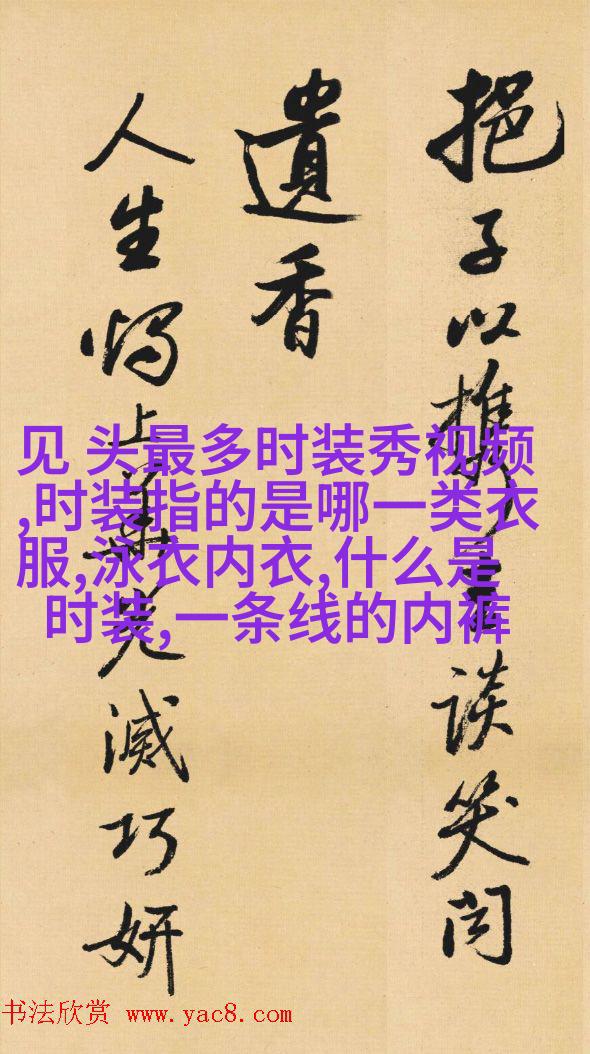 挹子以談笑间
遺香
人生上光滅巧妍
见 头最多时装秀视频
,时装指的是哪一类衣
服,泳衣内衣,什么是
时装,一条线的内裤
书法欣赏 www.yac8.com